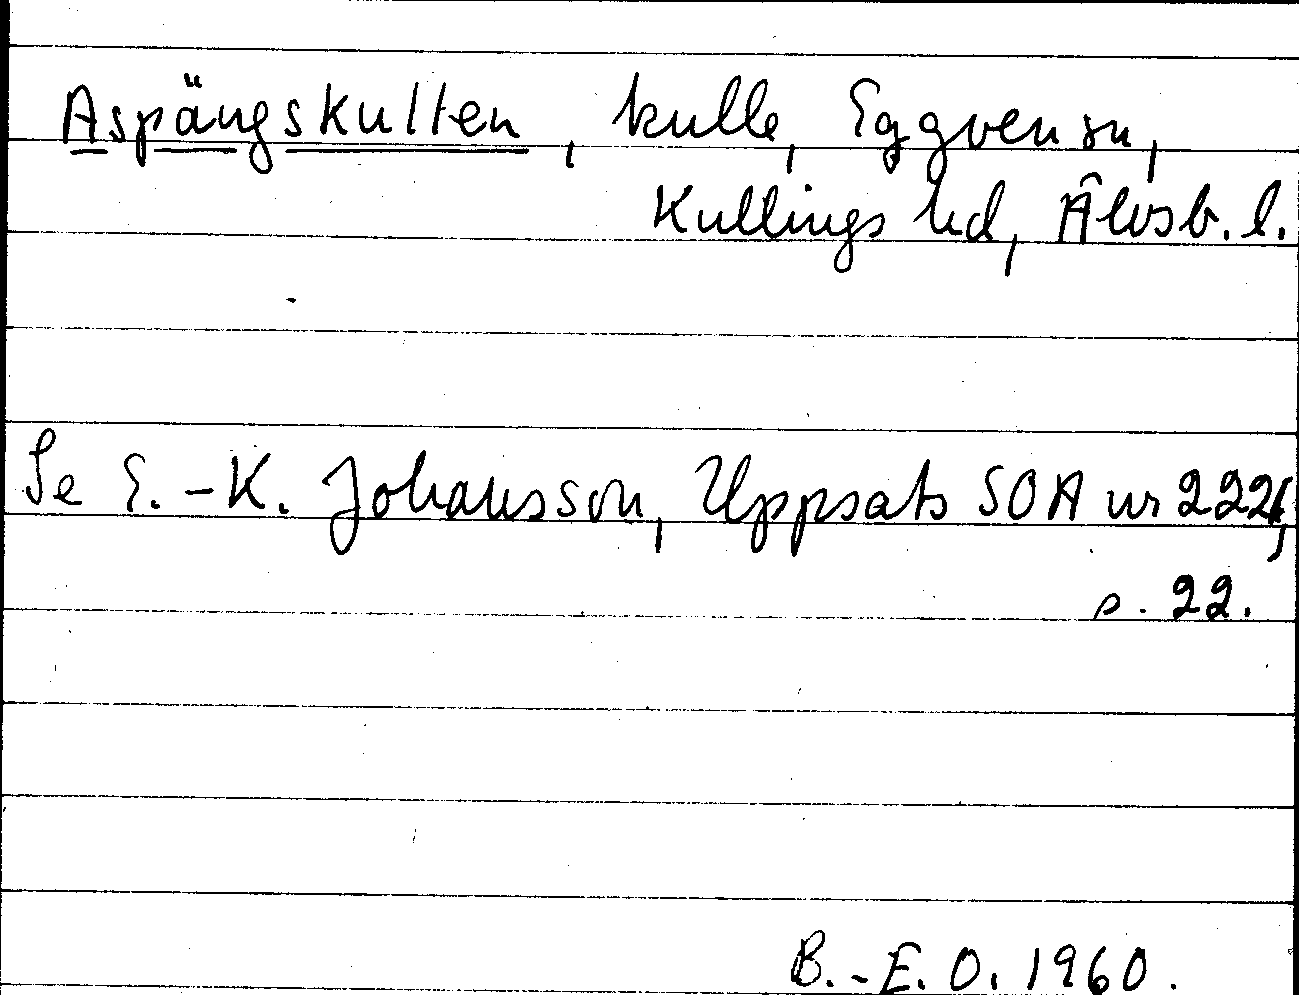 Aspängskullen, kulle, Eggvena sn,
Kullings hd, Älvsb. l.
Se E.-K. Johansson, Uppsats SOA nr 2221,
s. 22.
B.-E. O. 1960.